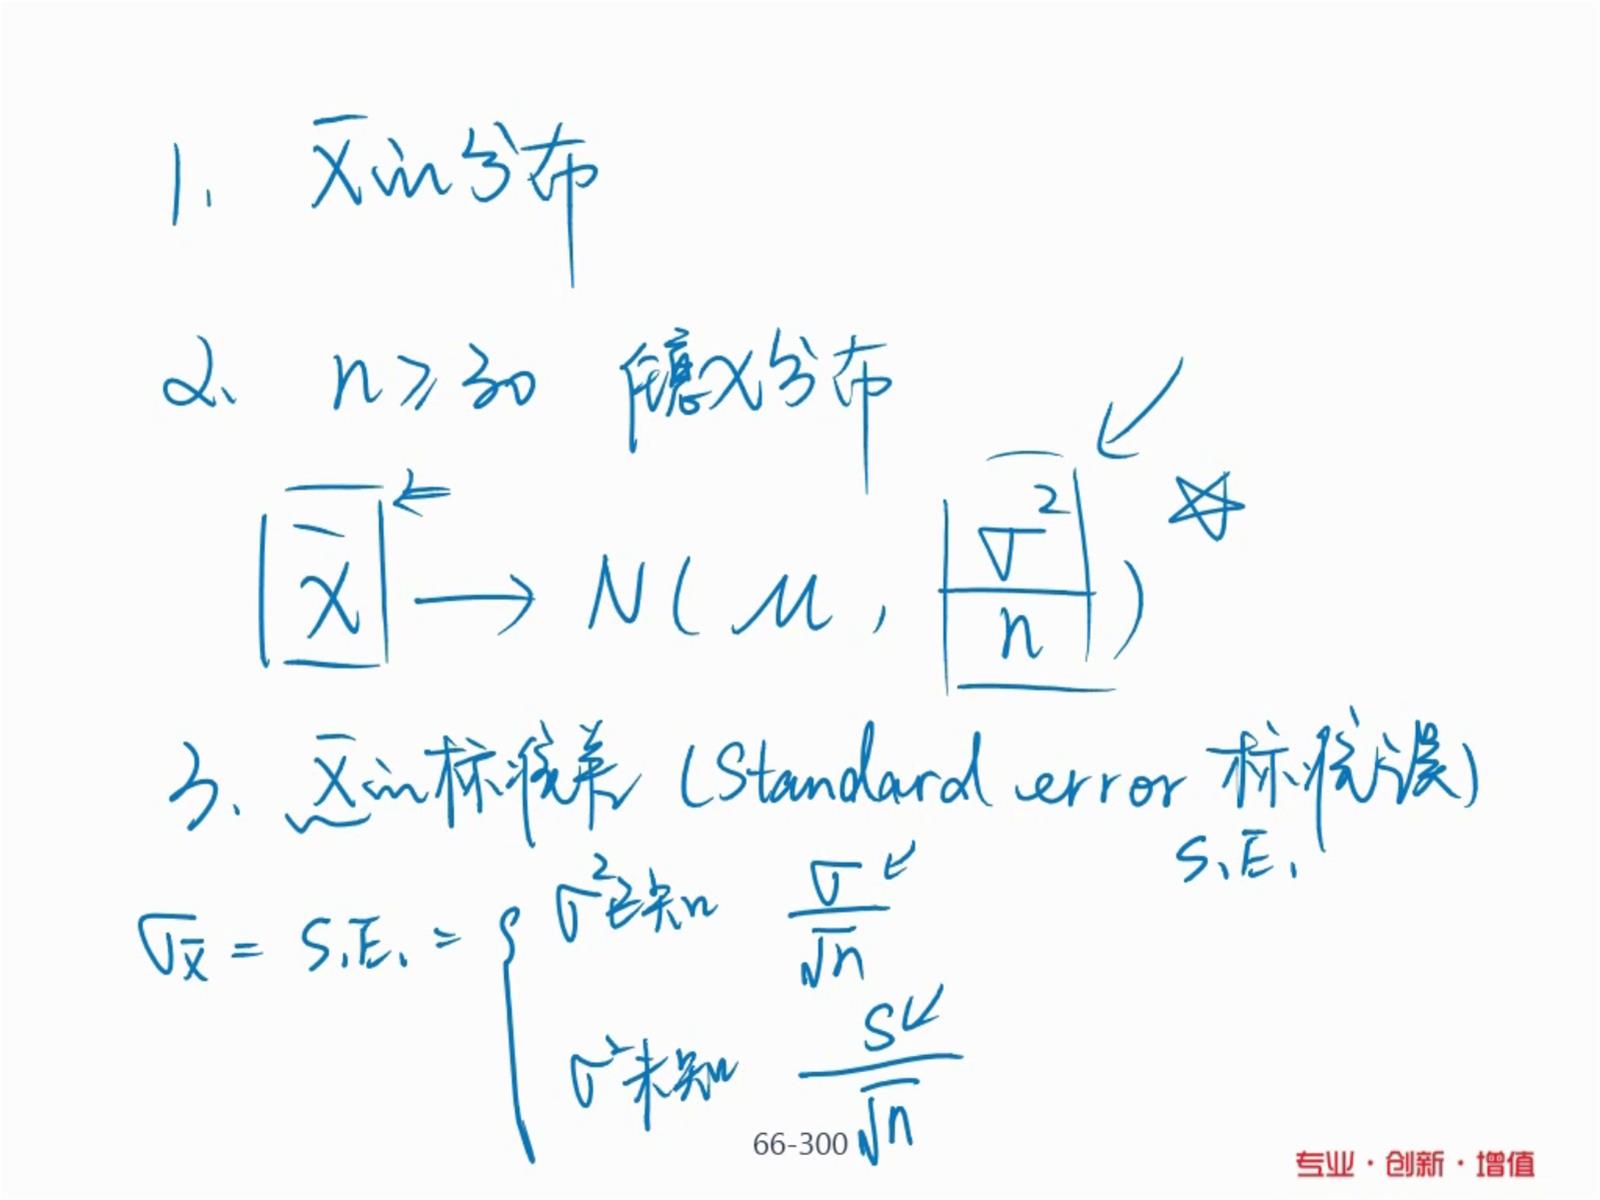 1. X̄的分布
2. n≥30 任意X分布
X̄ → N(μ, σ²/n)
3. X̄的标准差 (Standard error 标准误)
S.E.
σx̄ = S.E. = { σ²已知 σ/√n
σ²未知 S/√n
66-300
专业·创新·增值